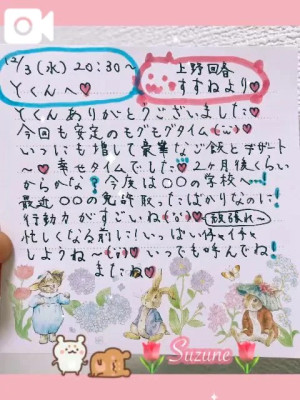 12/3(水) 20:30~
Yくんへ♥
上野回春
すずねより♥
Yくんありがとうございました♥
今回も安定のモグモグタイム(¨)♥
いつにも増して豪華なご飯とデザート
~♥幸せタイムでした!!2ヶ月後くらい
からかな?今度は○○の学校へ…!
最近○○の免許取ったばかりなのに!
行動力がすごいね(¨)♥頑張れ~
忙しくなる前に!いっぱいイチャイチャ
しようね~(¨)♥いつでも呼んでね!
またね♥
Suzune